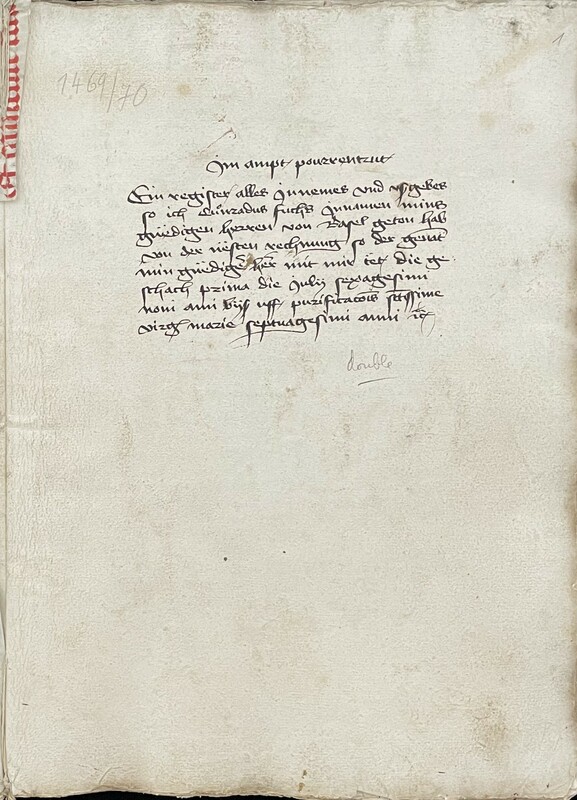 1
1469/70
Im ampt pourrentrut
Ein register alles Innemes vnd vsgebes
so ich Cuonradus fuchs Innamen mins
gnedigen herren von Basel geton hab
von der nesten rechnung so der genant
min gnediger her mit mir tet die ge
schach prima die Julij sexagesimi
noni anni bijs vff purificacois
virg marie septuagesimi anni
double